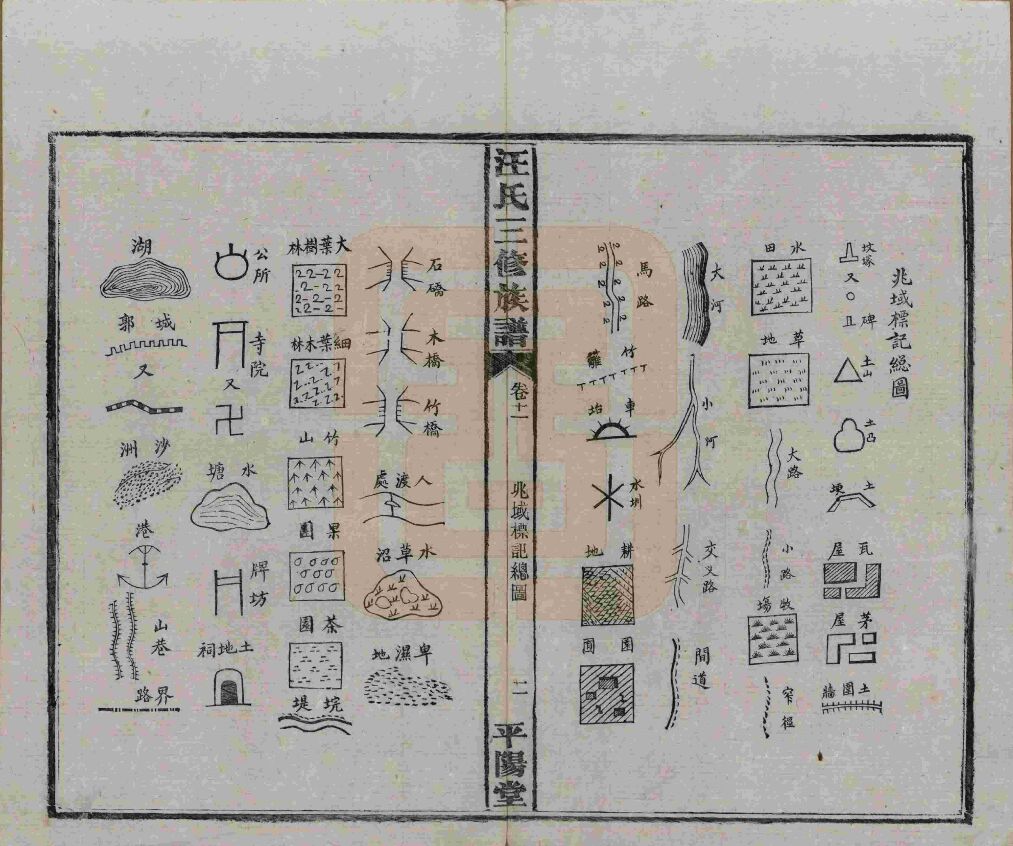 兆域標記總圖
坟塚
又
碑
土山
土凸
土埂
瓦屋
茅屋
土圍牆
水田
草地
大路
小路
牧場
窄徑
大河
小河
交叉路
間道
馬路
竹籬
車
水圳
耕地
園圃
汪氏三修族譜
卷十一
兆域標記總圖
二
平陽堂
石橋
木橋
竹橋
人渡處
水草沼
卑濕地
大葉樹林
細葉木林
竹山
果園
茶園
垸堤
公所
寺院
又
水塘
牌坊
土地祠
湖
城郭
又
沙洲
港
山巷
界路